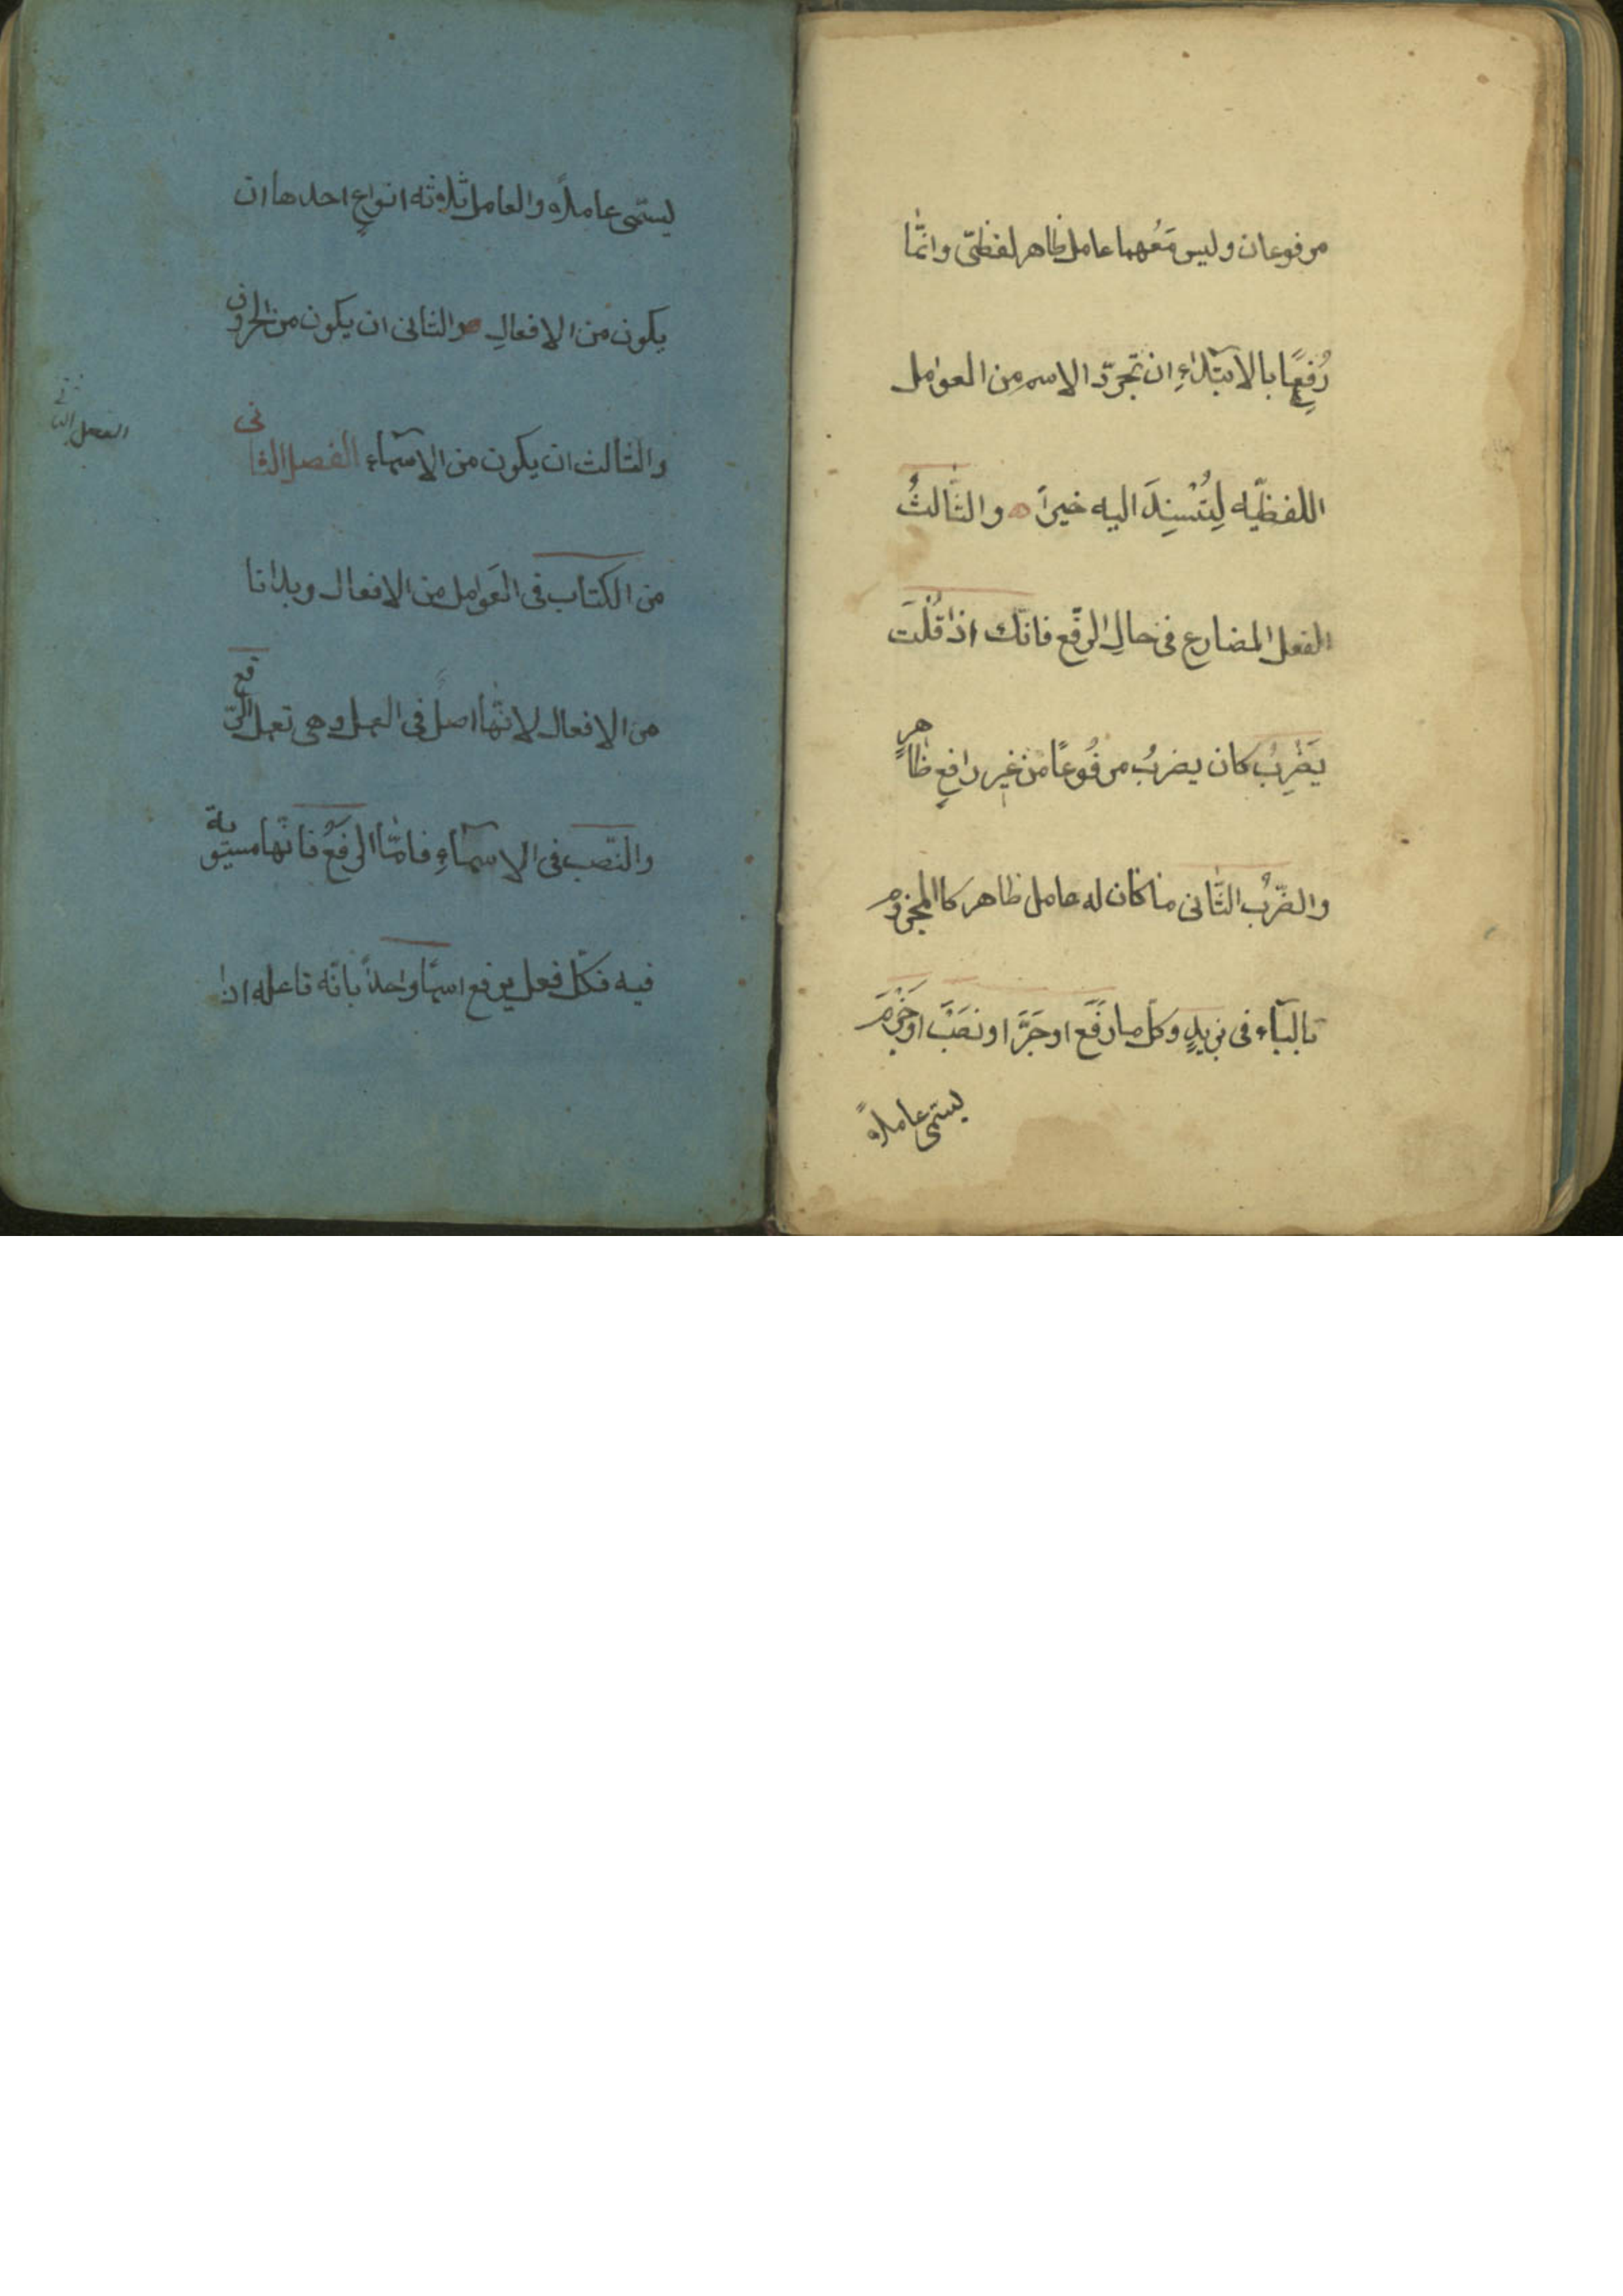 مرفوعان وليس مَعُهما عامل ظاهر لفظىّ وانّما
رُفِعَا بالابتداءِ ان تجرّد الاسم من العوامل
اللفظيّه لِتُسْنِدَ اليه خبراً ه والثَّالثُ
الفعل المضارع فى حالِ الرّفع فانّك اذا قُلْتَ
يَضْرِبُ كان يضربُ مرفُوعًا من غير رافعٍ ظاهرٍ
والضّربُ الثَّانى ما كان له عامل ظاهر كاالمجزوم
بالبآء فى بزيدٍ وكلّ ما رَفَعَ او جَرَّ او نصَبَ او جَزَمَ
يسمّى عاملاً ه
ليسمّى عاملاً ه والعامل ثلاثه انواعٍ احدها ان
يكون من الافعالِ ه والثانى ان يكون من الحروف
والثالث ان يكون من الاسمآء الفصل الثانى
الفصل الثانى
من الكتاب فى العَوامل من الافعال وبدانا
من الافعال لانّها اصل فى العمل وهى تعمل الرّفع
والنّصب فى الاسمآءِ فامّا الرّفعُ فانّها مستوية
فيه فكلّ فعل يرفع اسمًا واحداً بانّه فاعله اذا